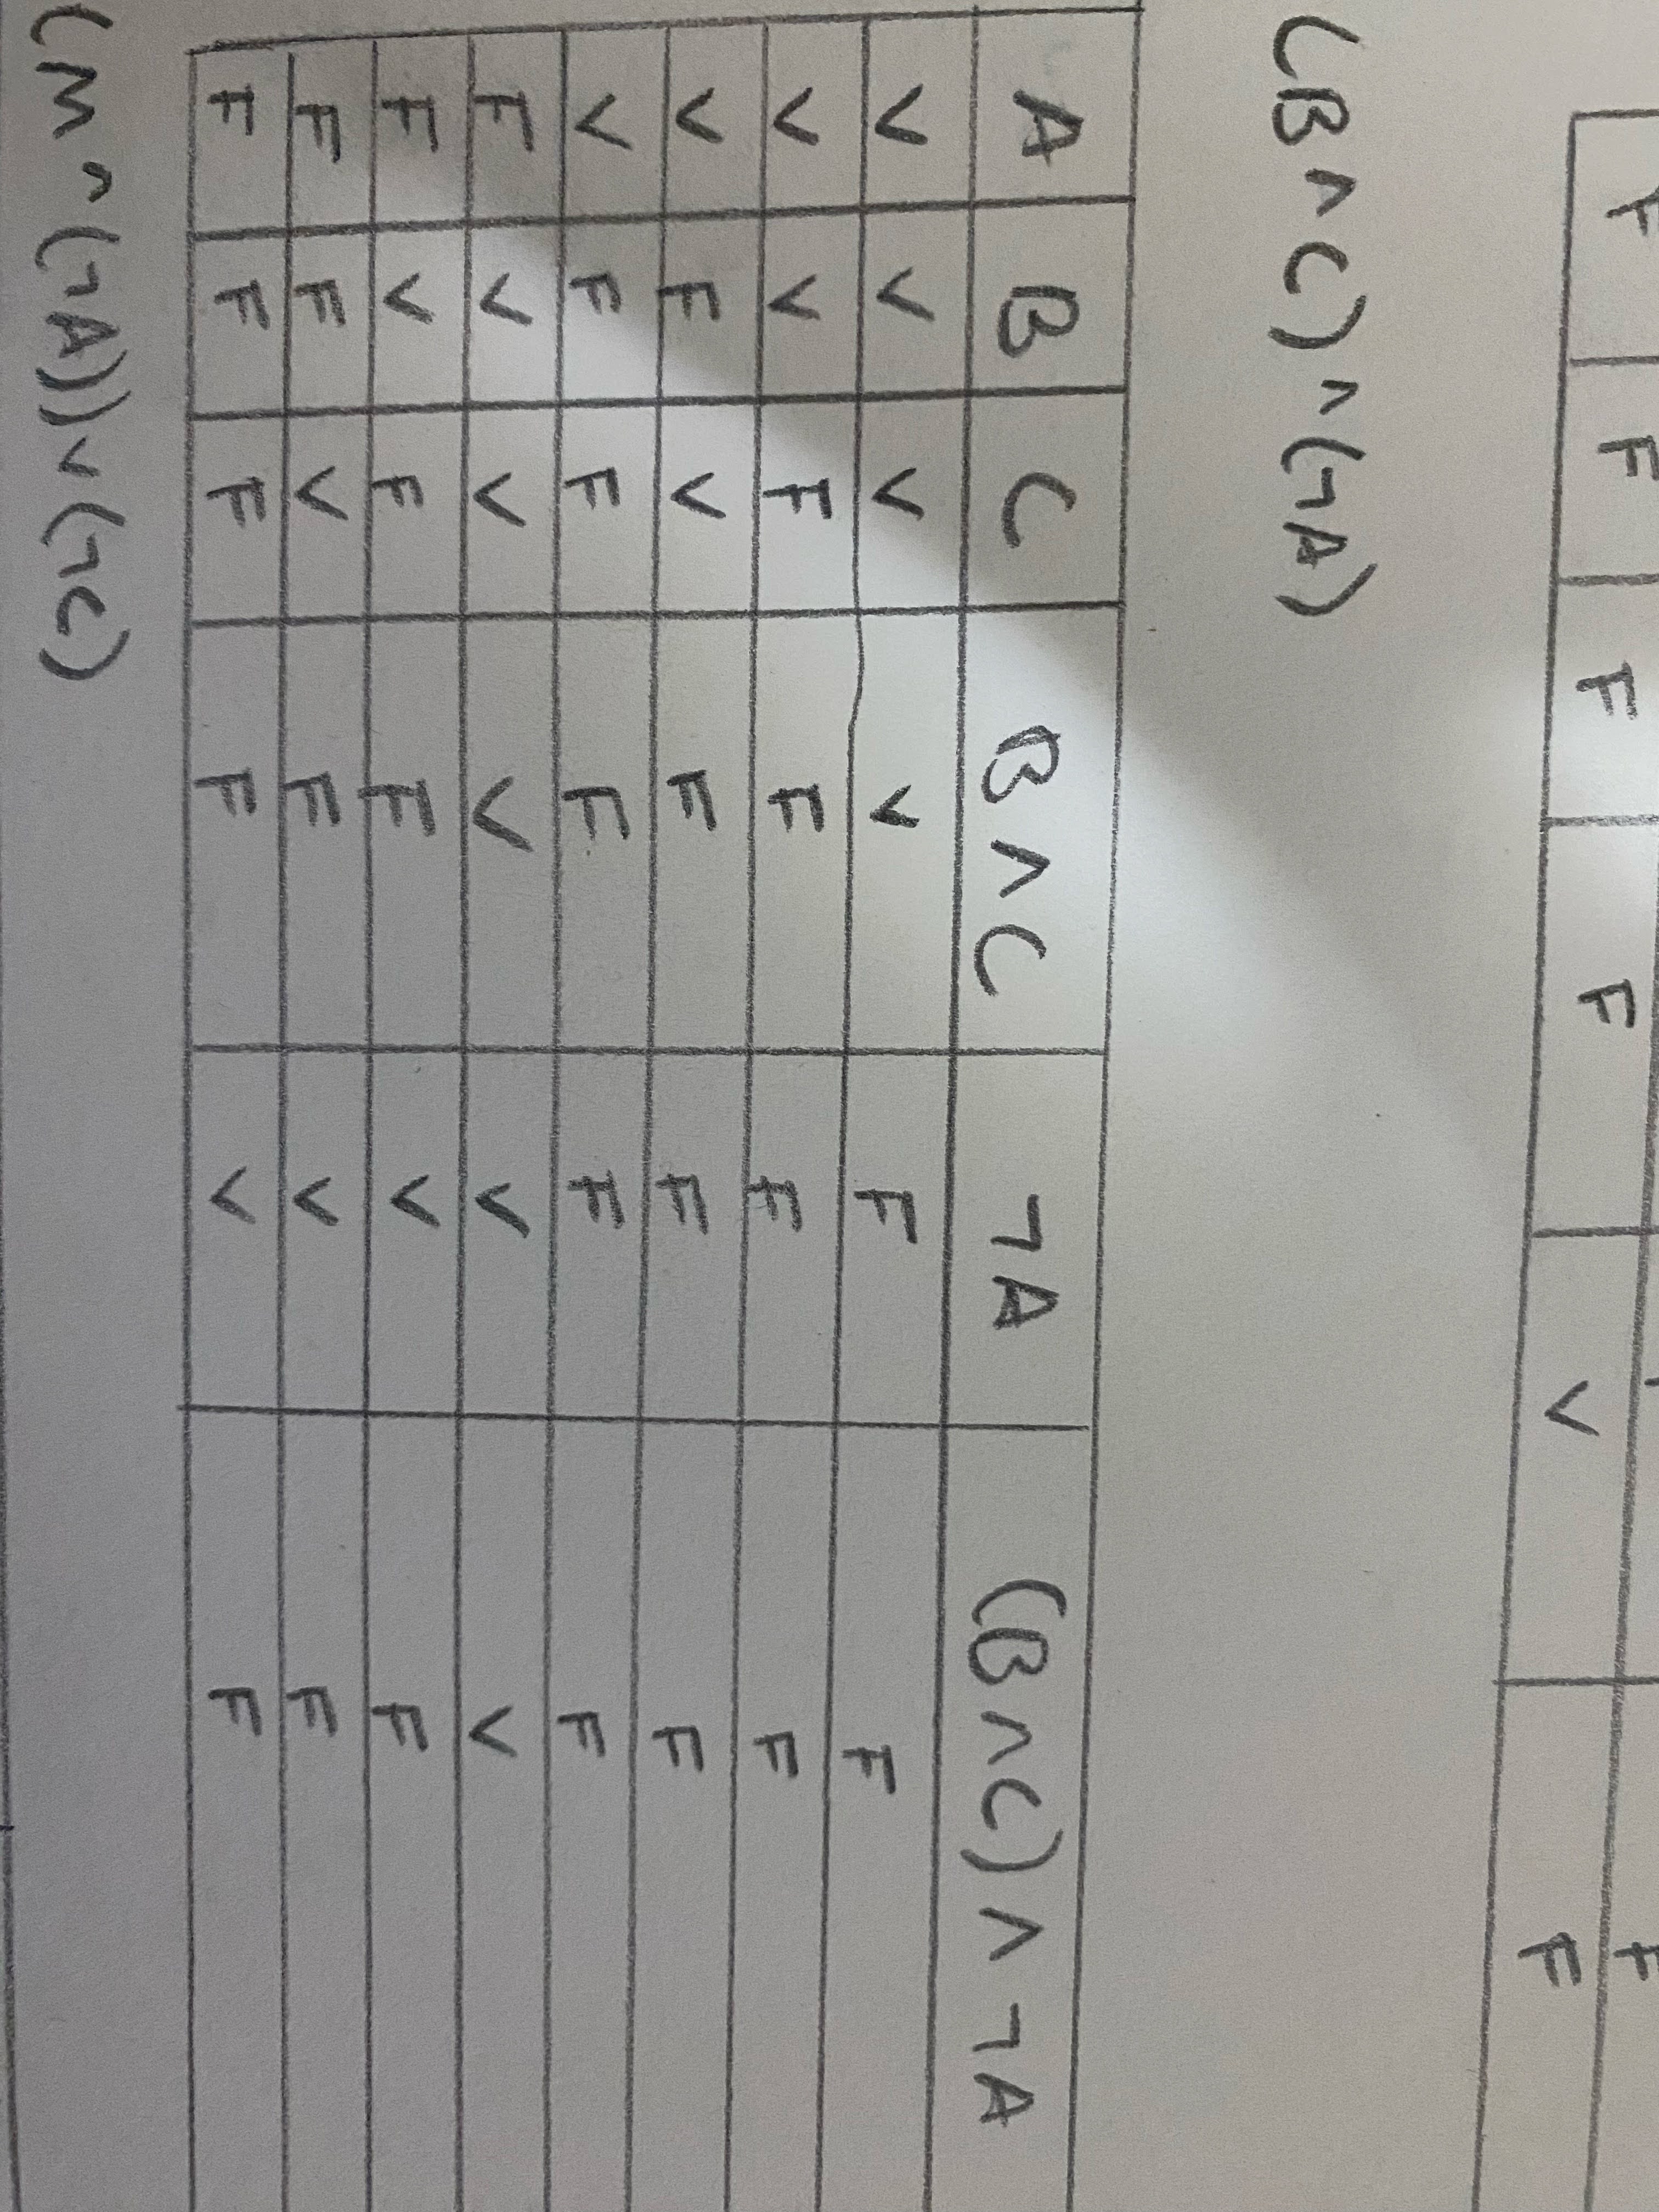 F
F F F F V F
(B ∧ C) ∧ (¬A)
A B C B ∧ C ¬A (B ∧ C) ∧ ¬A
V V V V F F
V V F F F F
V F V F F F
V F F F F F
F V V V V V
F V F F V F
F F V F V F
F F F F V F
(M ∧ (¬A)) ∨ (¬C)